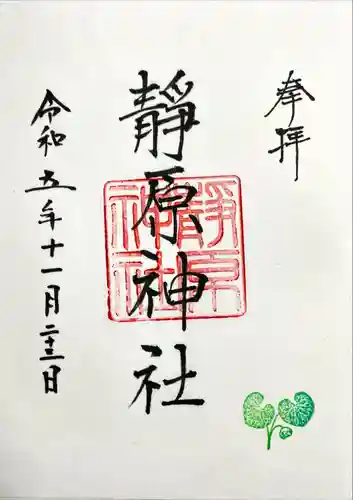 奉拝
靜原神社
靜原神社
令和五年十一月二十三日